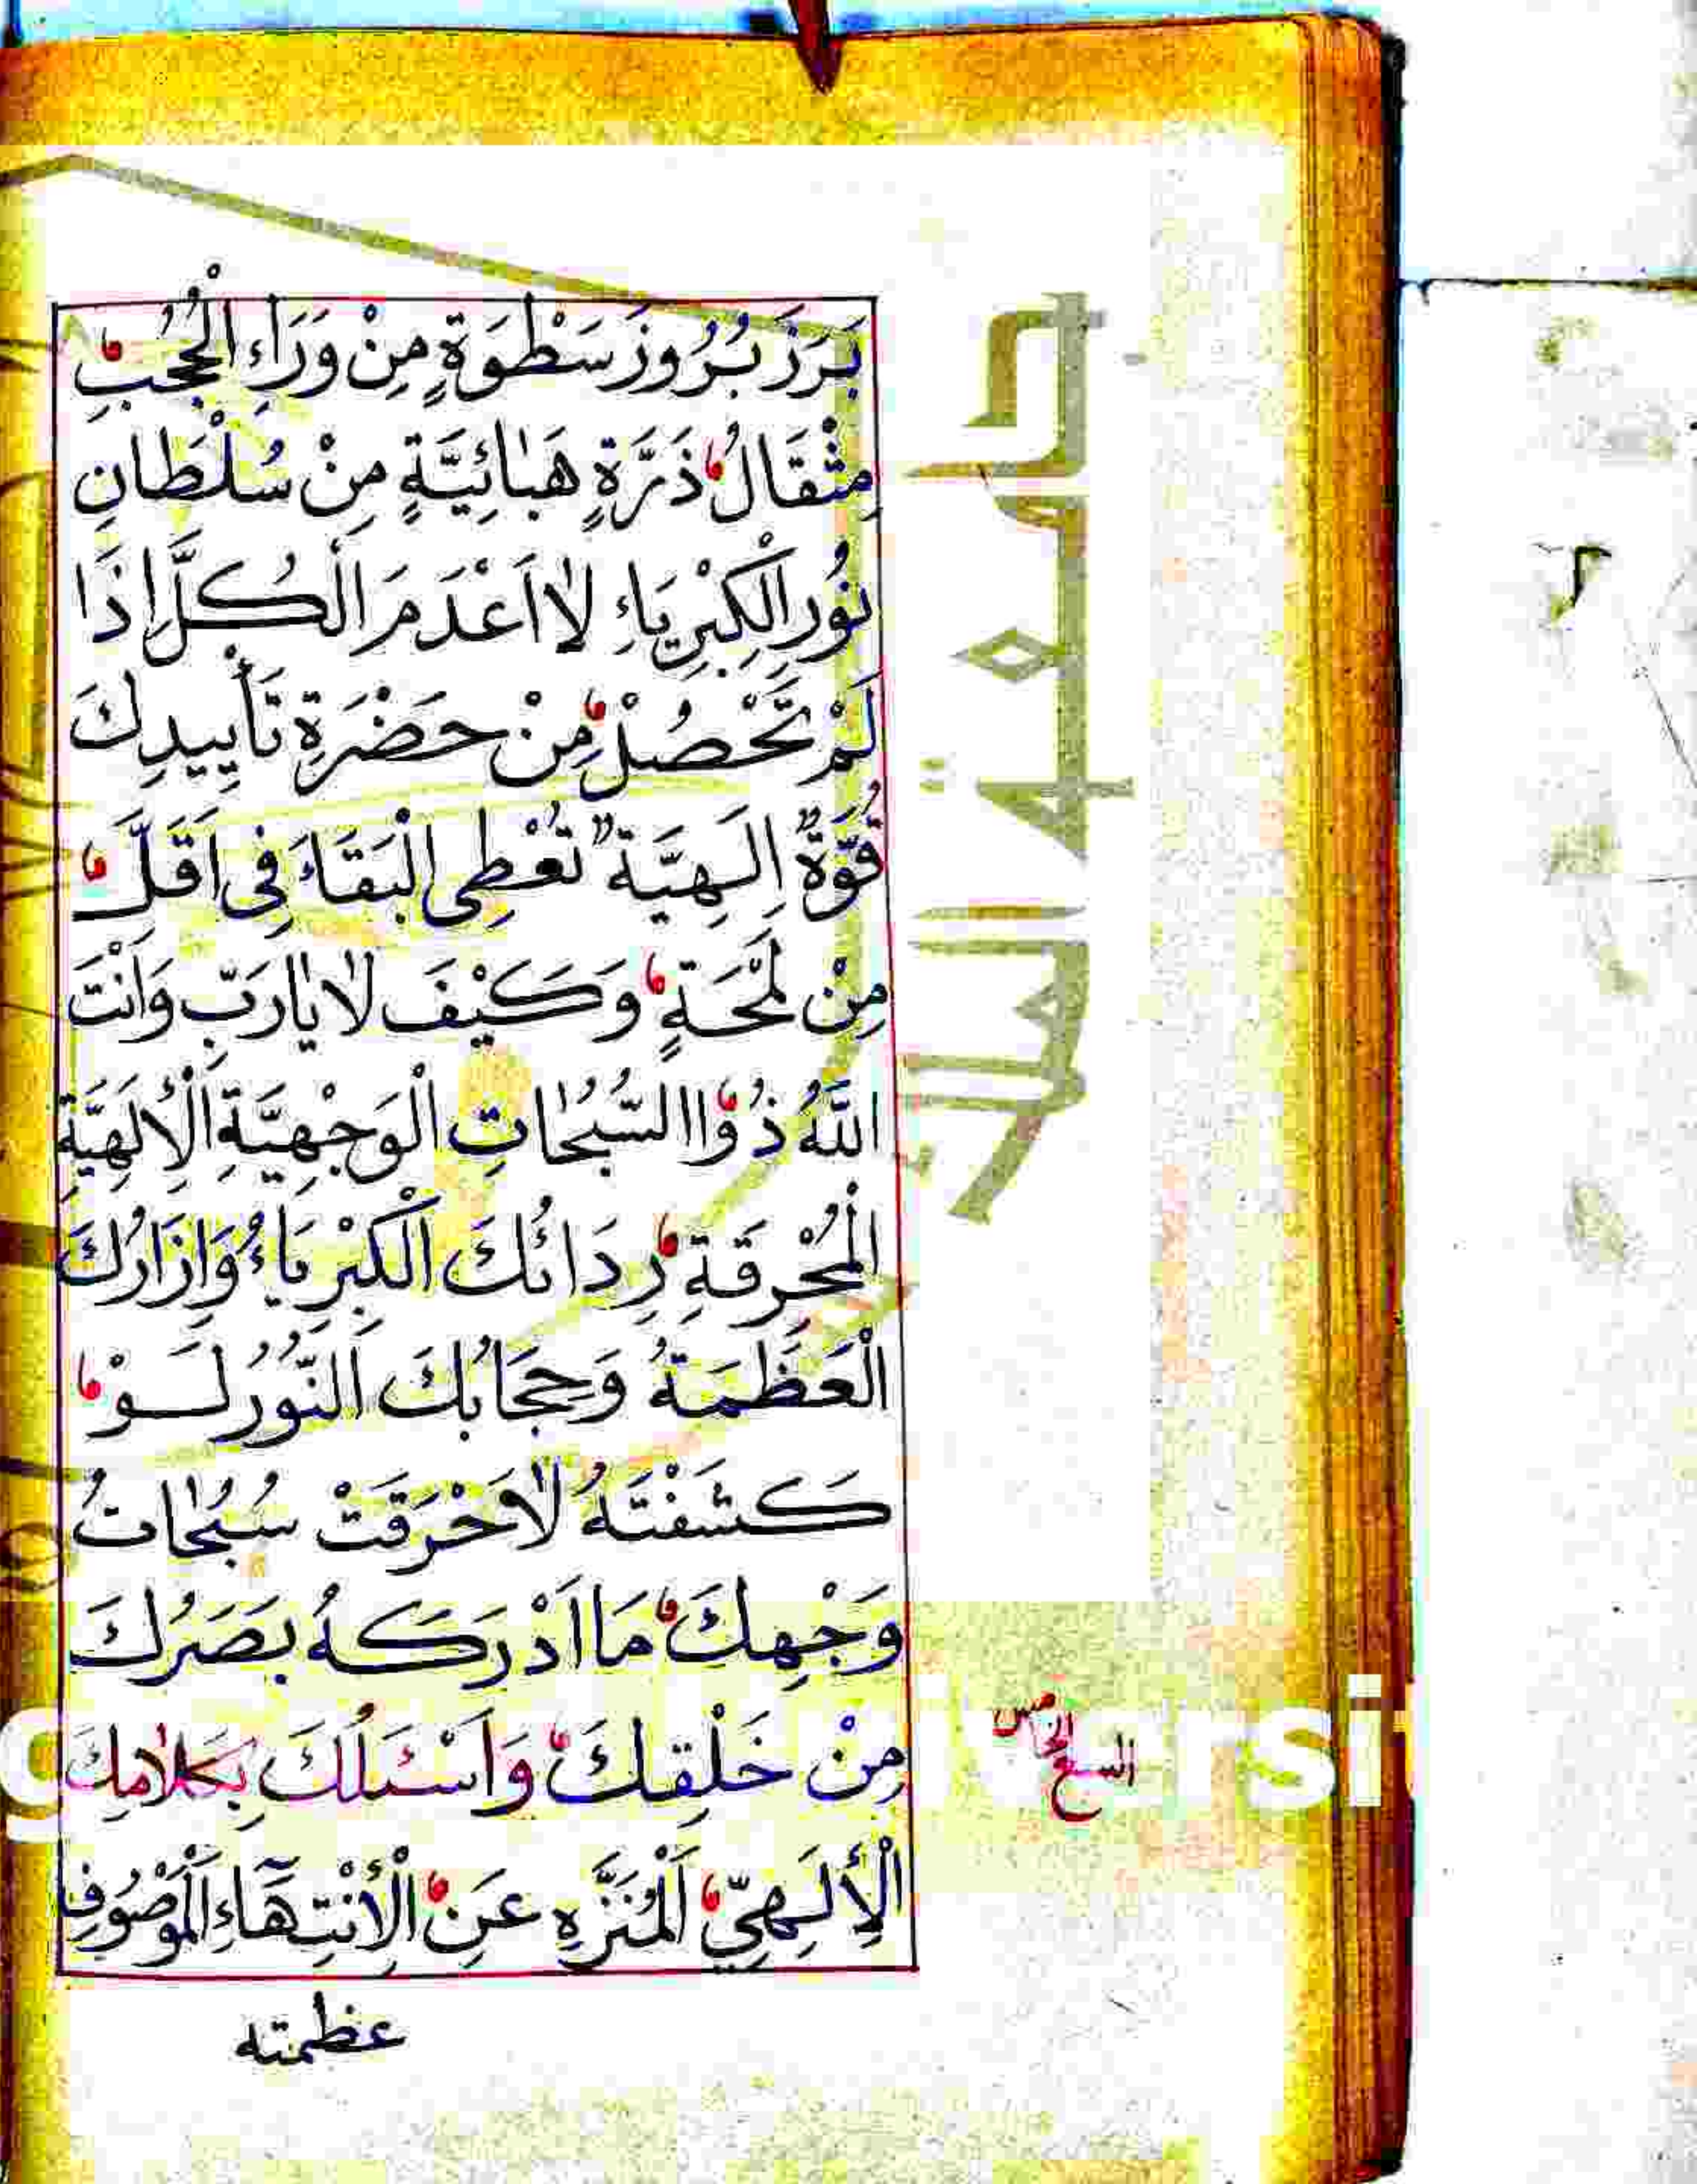 بَرَزَ بُرُوزَ سَطْوَةٍ مِنْ وَرَاءِ الْحُجُبِ
مِثْقَالُ ذَرَّةٍ هَبَائِيَّةٍ مِنْ سُلْطَانِ
نُورِ الْكِبْرِيَاءِ لَااَعْدَمَ الْكُلَّ اِذَا
لَمْ تَحْصُلْ مِنْ حَضْرَةِ تَأْيِيدِكَ
قُوَّةٌ اِلَهِيَّةٌ تُعْطِى الْبَقَاءَ فِى اَقَلِّ
مِنْ لَمْحَةٍ وَكَيْفَ لَا يَارَبِّ وَاَنْتَ
اللَّهُ ذُواالسُّبُحَاتِ الْوَجْهِيَّةِ الْإِلَهِيَّةِ
الْمُحْرِقَةِ رِدَائُكَ الْكِبْرِيَاءُ وَاِزَارُكَ
الْعَظَمَةُ وَحِجَابُكَ النُّورُ لَوْ
كَشَفْتَهُ لَاَحْرَقَتْ سُبُحَاتُ
وَجْهِكَ مَا اَدْرَكَهُ بَصَرُكَ
مِنْ خَلْقِكَ وَاَسْئَلُكَ بِكَلَامِكَ
الْإِلَهِيِّ اَلْمُنَزَّهِ عَنِ الْأِنْتِهَاءِ اَلْمَوْصُوفِ
عظمته
السبع الخامس
جامعة الملك
g universi